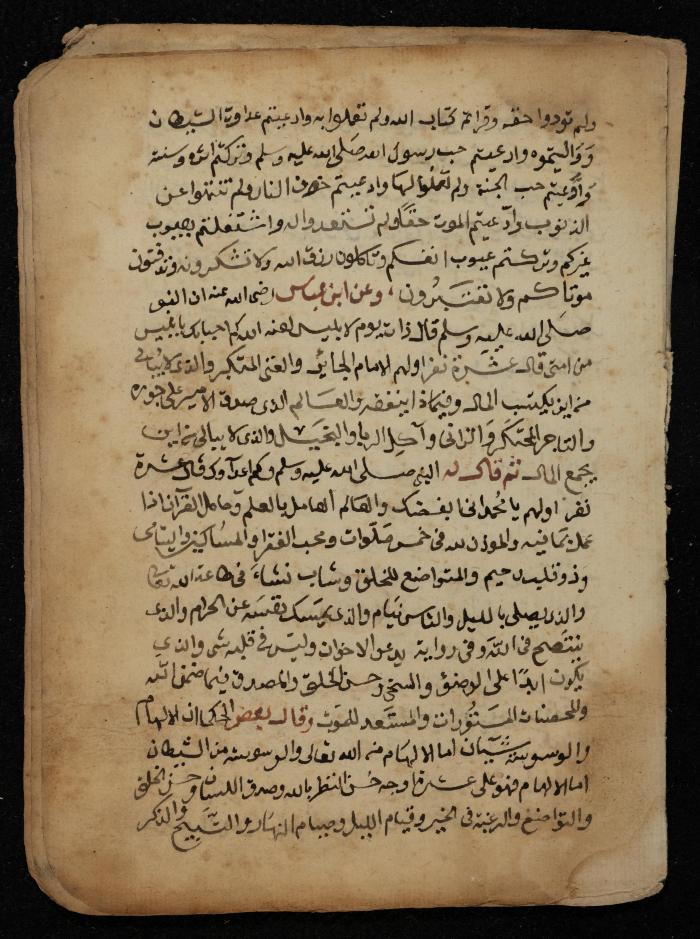 ولم تودوا حقه وقراتم كتاب الله ولم تعملوا به وادعيتم عداوة الشيطان
وواليتموه وادعيتم حب رسول الله صلى الله عليه وسلم وتركتم اثره وسنته
وادعيتم حب الجنة ولم تعملوا لها وادعيتم خوف النار ولم تنتهوا عن
الذنوب وادعيتم الموت حقا ولم تستعدوا له واشتغلتم بعيوب
غيركم وتركتم عيوب انفسكم وتاكلون رزق الله ولا تشكرونه وتدفنون
موتاكم ولا تعتبرون، وعن ابن عباس رضى الله عنه ان النبى
صلى الله عليه وسلم قال ذات يوم لابليس لعنه الله كم احبابك يا ابليس
من امتى قال عشرة نفر اولهم الامام الجائر والغنى المتكبر والذى لا يبالى
من اين يكتسب المال وفيماذا ينفقه والعالم الذى صدق الامير على جوره
والتاجر المحتكر والزانى وآكل الربا والبخيل والذى لا يبالى من اين
يجمع المال ثم قال له النبى صلى الله عليه وسلم وكم اعداؤك قال عشرة
نفر اولهم يا محمد انى ابغضك والعالم العامل بالعلم وحامل القرآن اذا
عمل بما فيه والموذن لله فى خمس صلوات ومحب الفقرا والمساكين واليتامى
وذو قلب رحيم والمتواضع للخلق وشاب نشاء فى طاعة الله تعالى
والذى يصلى بالليل والناس نيام والذى يمسك نفسه عن الحرام والذى
ينتصح فى الله وفى رواية يدعو الاخوان وليس فى قلبه شى والذى
يكون ابدا على الوضؤ والسخى وحسن الخلق والمصدق فيما ضمن الله
والمحصنات المستورات والمستعد للموت وقال بعض الحكما ان الالهام
والوسوسة شيآن اما الالهام من الله تعالى والوسوسة من الشيطان
اما الالهام فهو على عشرة اوجه حسن النظر بالله وصدق اللسان وحسن الخلق
والتواضع والرغبة فى الخير وقيام الليل وصيام النهار والتسبيح والذكر